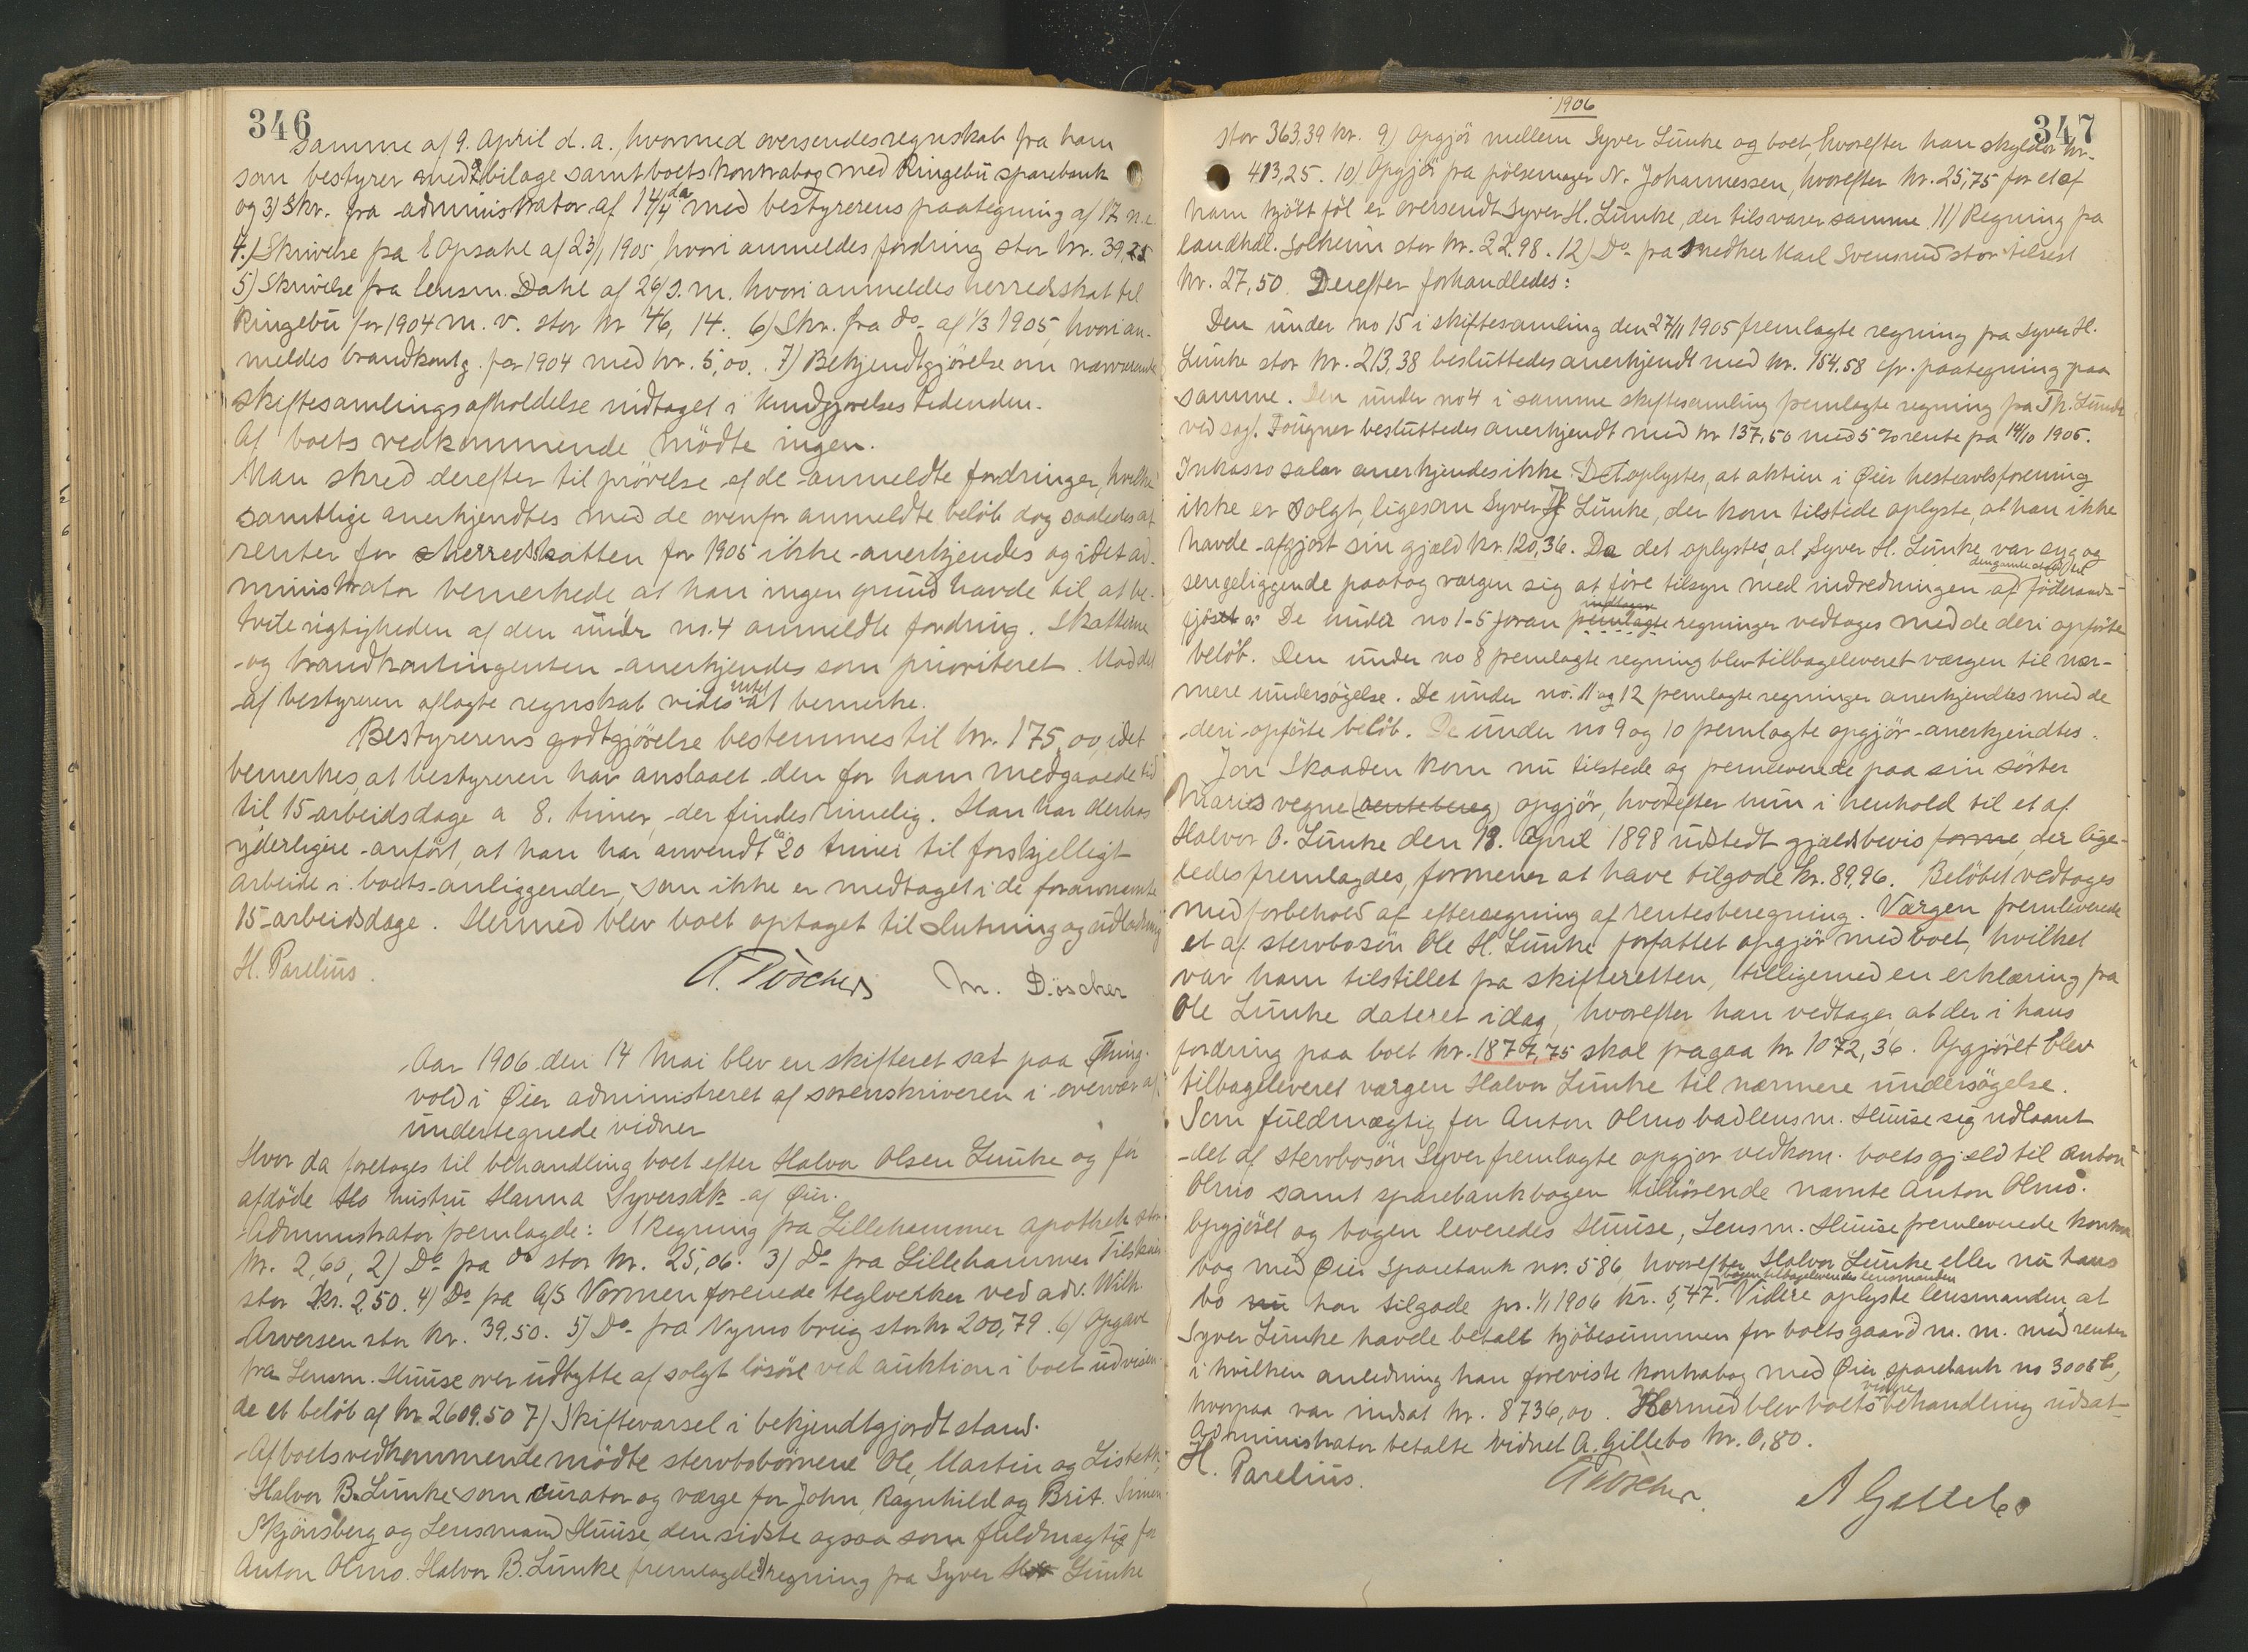 346
Samme af 9. April d. a., hvormed oversendes regnskab fra ham
som bestyrer med 2 bilage samt boets kontrabog med Ringebu sparebank
og 3) Skr. fra administrator af 14/4 da med bestyrerens paategning af 17 n.e.
4.) Skrivelse fra E Opsahl af 23/1 1905 hvori anmeldes fordring stor kr. 39,25
5) Skrivelse fra lensm. Dahl af 26/s.m. hvori anmeldes herredsskat til
Ringebu for 1904 m. v. stor kr 46,14. 6) Skr. fra do- af 1/3 1905, hvori an-
meldes brandkontg. for 1904 med kr. 5,00. 7) Bekjendtgjörelse om nærværende
skiftesamlings afholdelse indtaget i Kundgjørelsestidenden.
Af boets vedkommende mödte ingen.
Man skred derefter til prövelse af de anmeldte fordringer, hvilke
samtlige anerkjendtes med de ovenfor anmeldte belöb dog saaledes at
renter for herredsskatten for 1905 ikke anerkjendes og idet ad-
ministrator bemerkede at han ingen grund havde til at be-
tvile rigtigheden af den under no. 4 anmeldte fordring. Skatterne
og brandkontingenten anerkjendes som prioriteret. Mod det
af bestyreren aflagte regnskab vides intet at bemerke.
Bestyrerens godtgjörelse bestemmes til kr. 175,00, idet
bemerkes, at bestyreren har anslaaet den for ham medgaaede tid
til 15 arbeidsdage a 8. timer, der findes rimelig. Han har derhos
yderligere anfört, at han har anvendt ca. 20 timer til forskjelligt
arbeide i boets anliggender, som ikke er medtaget i de forannævnte
15 arbeidsdage. Hermed blev boet optaget til slutning og udlodning
H. Parelius. A. Döscher M. Döscher
Aar 1906 den 14 Mai blev en skifteret sat paa Thing-
vold i Øier administreret af sorenskriveren i overvær af
undertegnede vidner
Hvor da foretoges til behandling boet efter Halvor Olsen Lunke og før
afdöde Ho hustru Hanna Syversdtr. af Øier.
Administrator fremlagde: 1 Regning fra Lillehammer apothek stor
kr. 2,60, 2) Do fra do stor kr. 25,06. 3) Do- fra Lillehammer Tilskuer
stor kr. 2,50. 4) Do fra A/S Vormen forenede teglverker ved adv. Wilh.
Arversen stor kr. 39.50. 5) Do- fra Nymo brug stor kr 200,79. 6) Opgave
fra Lensm. Huuse over udbytte af solgt lösöre ved auktion i boet udvisen-
de et belöb af kr. 2609.50 7) Skiftevarsel i bekjendtgjordt stand.
Af boets vedkommende mödte stervbobörnene Ole, Martin og Lisbeth,
Halvor B. Lunke som curator og værge for John, Ragnhild og Brit. Simen
Skjönsberg og Lensmand Huuse, den sidste ogsaa som fuldmægtig for
Anton Olmo. Halvor B. Lunke fremlagde 8) regning fra Syver Lunke
1906
347
stor 363,39 kr. 9) Opgjör mellem Syver Lunke og boet, hvorefter han skylder kr.
413,25. 10) Opgjör fra pölsemager N. Johannessen, hvorefter kr. 25,75 for et af
ham kjöbt föl er oversendt Syver H. Lunke, der tilsvarer samme. 11) Regning fra
landhdl. Solheim stor kr. 22.98. 12) Do- fra snedker Karl Svensrud stor tilrest
kr. 27,50. Derefter forhandledes:
Den under no 15 i skiftesamling den 27/11 1905 fremlagte regning fra Syver H.
Lunke stor kr. 213,38 besluttedes anerkjendt med kr. 154.58 cfr. paategning paa
samme. Den under no 4 i samme skiftesamling fremlagte regning fra Th. Lunde
ved sagf. Fougner besluttedes anerkjendt med kr 137,50 med 5 % rente fra 14/10 1905.
Inkassosalær anerkjendes ikke. Det oplystes, at aktien i Øier hesteavlsforening
ikke er solgt, ligesom Syver H Lunke, der kom tilstede oplyste, at han ikke
havde afgjort sin gjæld kr. 120,36. Da det oplystes, at Syver H. Lunke var syg og
sengeliggende paatog værgen sig at före tilsyn med indredningen af föderaads-
De under no 1-5 foran indtagne fremlagte regninger vedtages med de deri opförte
belöb. Den under no 8 fremlagte regning blev tilbageleveret værgen til nær-
mere undersögelse. De under no. 11 og 12 fremlagte regninger anerkjendtes med de
deri opförte belöb. De under no 9 og 10 fremlagte opgjör anerkjendtes.
Jon Skaaden kom nu tilstede og fremleverede paa sin söster
Maries vegne (rentebereg) opgjör, hvorefter hun i henhold til et af
Halvor O. Lunke den 18. April 1898 udstedt gjældsbevis forme, der lige-
ledes fremlagdes, formener at have tilgode kr. 89,96. Belöbet vedtages
med forbehold af efterregning af rentesberegning. Værgen fremleverede
et af stervbosön Ole H. Lunke forfattet opgjör med boet, hvilket
var ham tilstillet fra skifteretten, tilligemed en erklæring fra
Ole Lunke dateret idag, hvorefter han vedtager at der i hans
fordring paa boet kr. 1877,75 skal fragaa kr 1072,36. Opgjöret blev
tilbageleveret værgen Halvor Lunke til nærmere undersögelse.
Som fuldmægtig for Anton Olmo bad lensm. Huuse sig udlaant
det af stervbosön Syver fremlagte opgjör vedkom. boets gjeld til Anton
Olmo samt sparebankbogen tilhörende nævnte Anton Olmo.
Opgjöret og bogen leveredes Huuse, Lensm. Huuse fremleverede kontra
bog med Øier Sparebank no. 586, hvorefter Halvor Lunke eller nu hans
bo nu har tilgode pr. 1/1 1906 kr. 5,47. bogen tilbageleveredes lensmanden Videre oplyste lensmanden, at
Syver Lunke havde betalt kjöbesummen for boets gaard m. m. med renter
i hvilken anledning han foreviste kontrabog med Øier sparebank no 3006b,
hvorpaa var indsat kr. 8736,00. Hermed blev boets videre behandling udsat-
Administrator betalte vidnet A. Gillebo kr. 0,80.
H. Parelius. A Döscher. A Gillebo